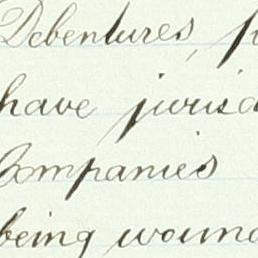 Debentures, p
have jurisd
Companies
being wound